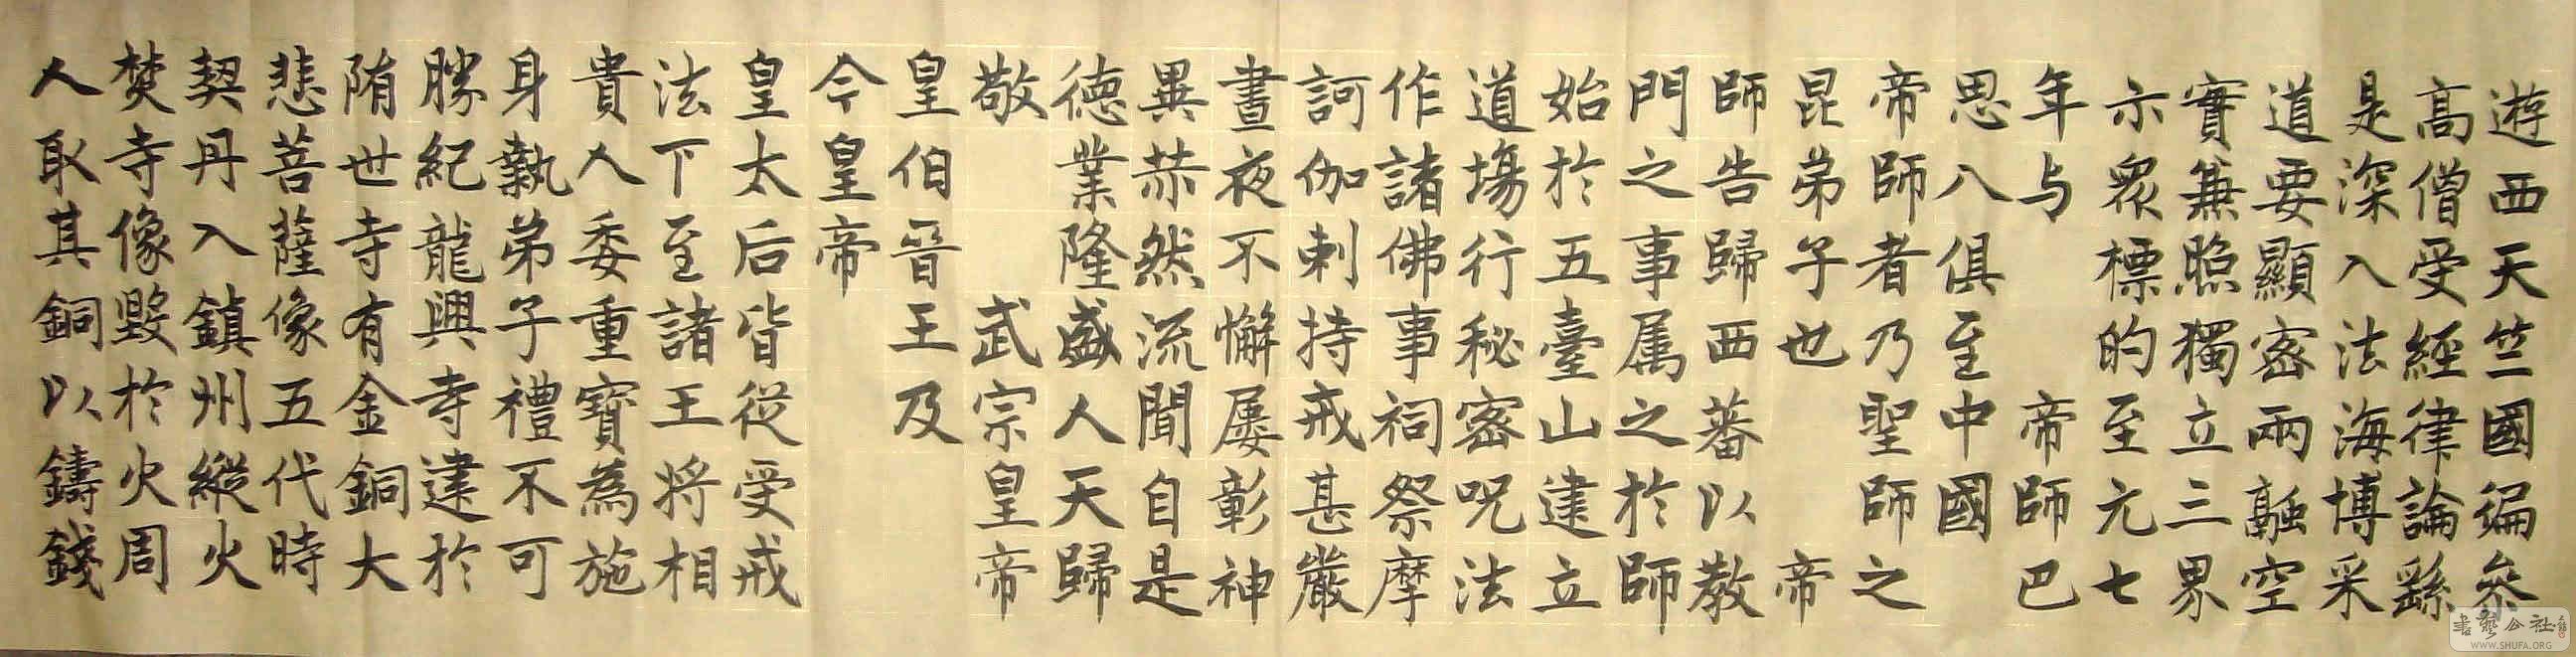 遊西天竺國徧叅
高僧受經律論繇
是深入法海博采
道要顯密兩融空
實兼照獨立三界
示眾標的至元七
年与帝師巴
思八俱至中國
帝師者乃聖師之
昆弟子也帝
師告歸西蕃以教
門之事属之於師
始於五臺山建立
道場行秘密呪法
作諸佛事祠祭摩
訶伽剌持戒甚嚴
晝夜不懈屢彰神
異恭然流聞自是
德業隆盛人天歸
敬武宗皇帝
皇伯晉王及
今皇帝
皇太后皆從受戒
法下至諸王將相
貴人委重寶為施
身執弟子禮不可
勝紀龍興寺建於
隋世寺有金銅大
悲菩薩像五代時
契丹入鎮州縱火
焚寺像毀於火周
人取其銅以鑄錢
書藝公社
WWW.SHUFA.ORG